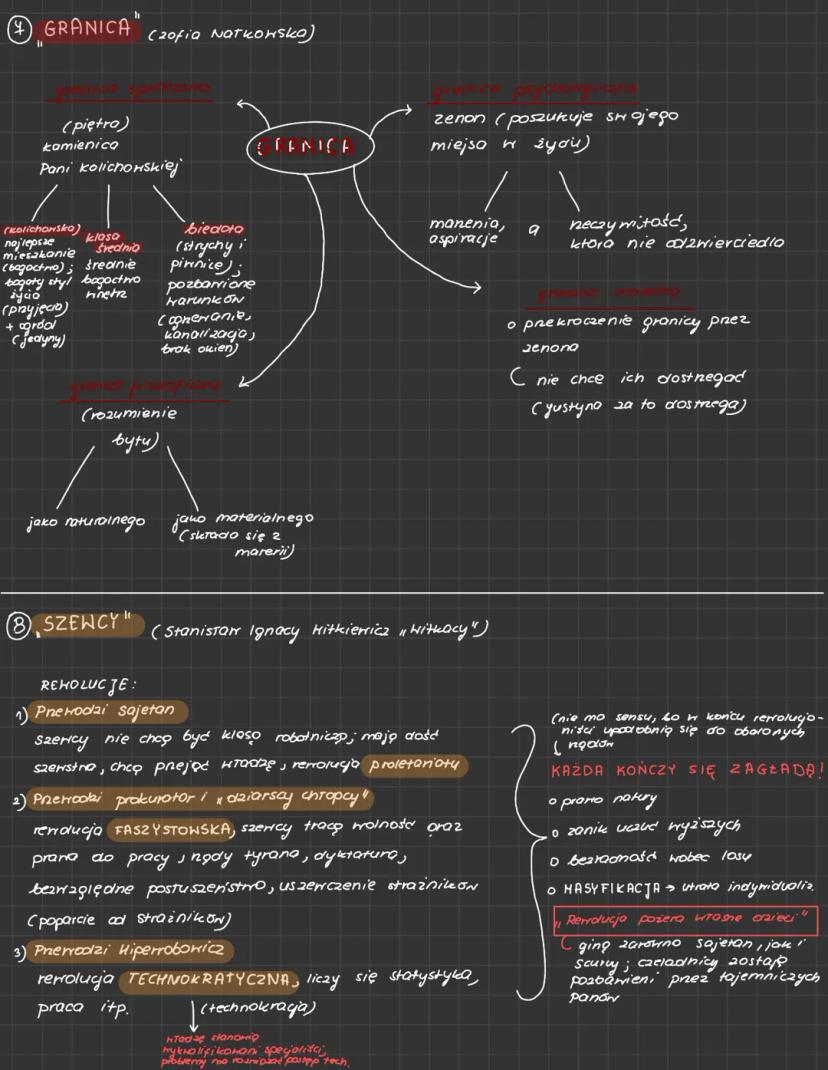 7 „GRANICA" (Zofia Nałkowska)
granica społeczna
(piętra)
kamienica
Pani Kolichowskiej
(Kolichowska)
najlepsze
mieszkanie
(bogactwo);
bogaty styl
życia
(przyjęcia)
+ ogród
(jedyny)
klasa
średnia
średnie
bogactwo
wnętrz
biedota
(strychy i
piwnice);
pozbawione
warunków
(ogrzewanie,
kanalizacja,
brak okien)
GRANICA
granica psychologiczna
zenon (poszukuje swojego
miejsa w życiu)
marzenia,
aspiracje
a
rzeczywitość,
która nie odzwierciedla
granica moralna
o przekroczenie granicy przez
zenona
nie chce ich dostrzegać
(Justyna za to dostrzega)
granica filozoficzna
(rozumienie
bytu)
jako naturalnego
jako materialnego
(składa się z
materii)
8 „SZEWCY" (Stanisław Ignacy Witkiewicz „Witkacy")
REWOLUCJE:
1) Przewodzi Sajetan
szewcy nie chcą być klasą robotniczą; mają dość
szewstwa, chcą przejąć władzę, rewolucja proletariatu
2) Przewodzi prokurator i „dziarscy chłopcy"
rewolucja FASZYSTOWSKA, szewcy tracą wolność oraz
prawa do pracy, rządy tyrana, dyktatura,
bezwzględne posłuszeństwo, uszewczenie strażników
(poparcie od strażników)
3) Przewodzi Hiperrobociarz
rewolucja TECHNOKRATYCZNA, liczy się statystyka,
praca itp. (technokracja)
władzę stanowią
wykwalifikowani specjaliści,
problemy ma rozwiązać postęp tech.
(nie ma sensu, bo w końcu rewolucjo-
niści upodobnią się do obalonych
rządów
KAŻDA KOŃCZY SIĘ ZAGŁADĄ!
o prawo natury
o zanik uczuć wyższych
o bezradność wobec losu
o MASYFIKACJA → utrata indywidualiz.
„Rewolucja pożera własne dzieci"
giną zarówno sajetan, jak i
scurvy; czeladnicy zostają
pozbawieni przez tajemniczych
panów